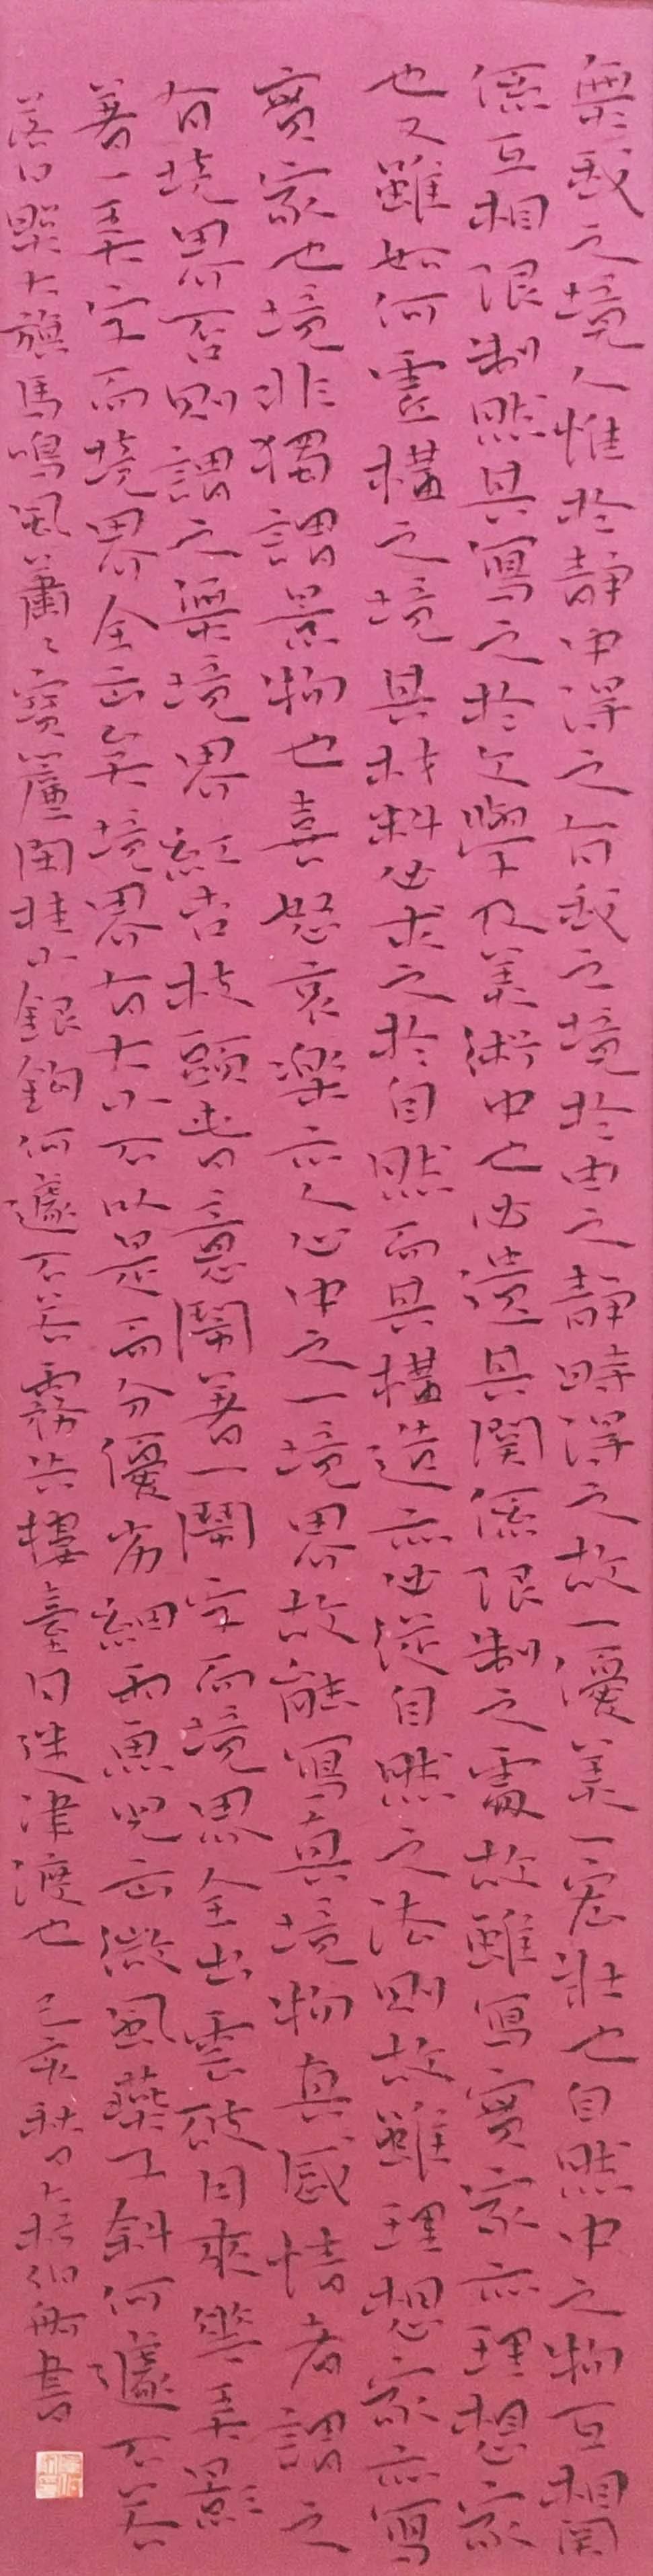 無我之境人惟於靜中得之有我之境於由之靜時得之故一優美一宏壯也自然中之物互相関
係互相限制然其寫之於文學及美術中也必遺其関係限制之處故雖寫實家亦理想家
也又雖如何虛構之境其材料必求之於自然而其構造亦必從自然之法則故雖理想家亦寫
實家也境非獨謂景物也喜怒哀樂亦人心中之一境界故能寫真境物真感情者謂之
有境界否則謂之無境界紅杏枝頭春意鬧著一鬧字而境界全出雲破月來花弄影
著一弄字而境界全出矣境界有大小不以是而分優劣細雨魚兒出微風燕子斜何遽不若
落日照大旗馬鳴風蕭々寶簾閑挂小銀鉤何遽不若霧失樓臺月迷津渡也 己亥秋日 伯舟書